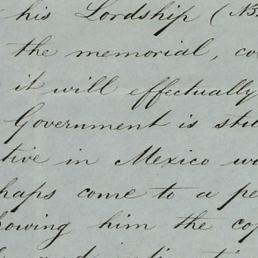 his Lordship (No
the memorial, co
it will effectually
Government is stu
tive in Mexico w
haps come to a pe
howing him the cop